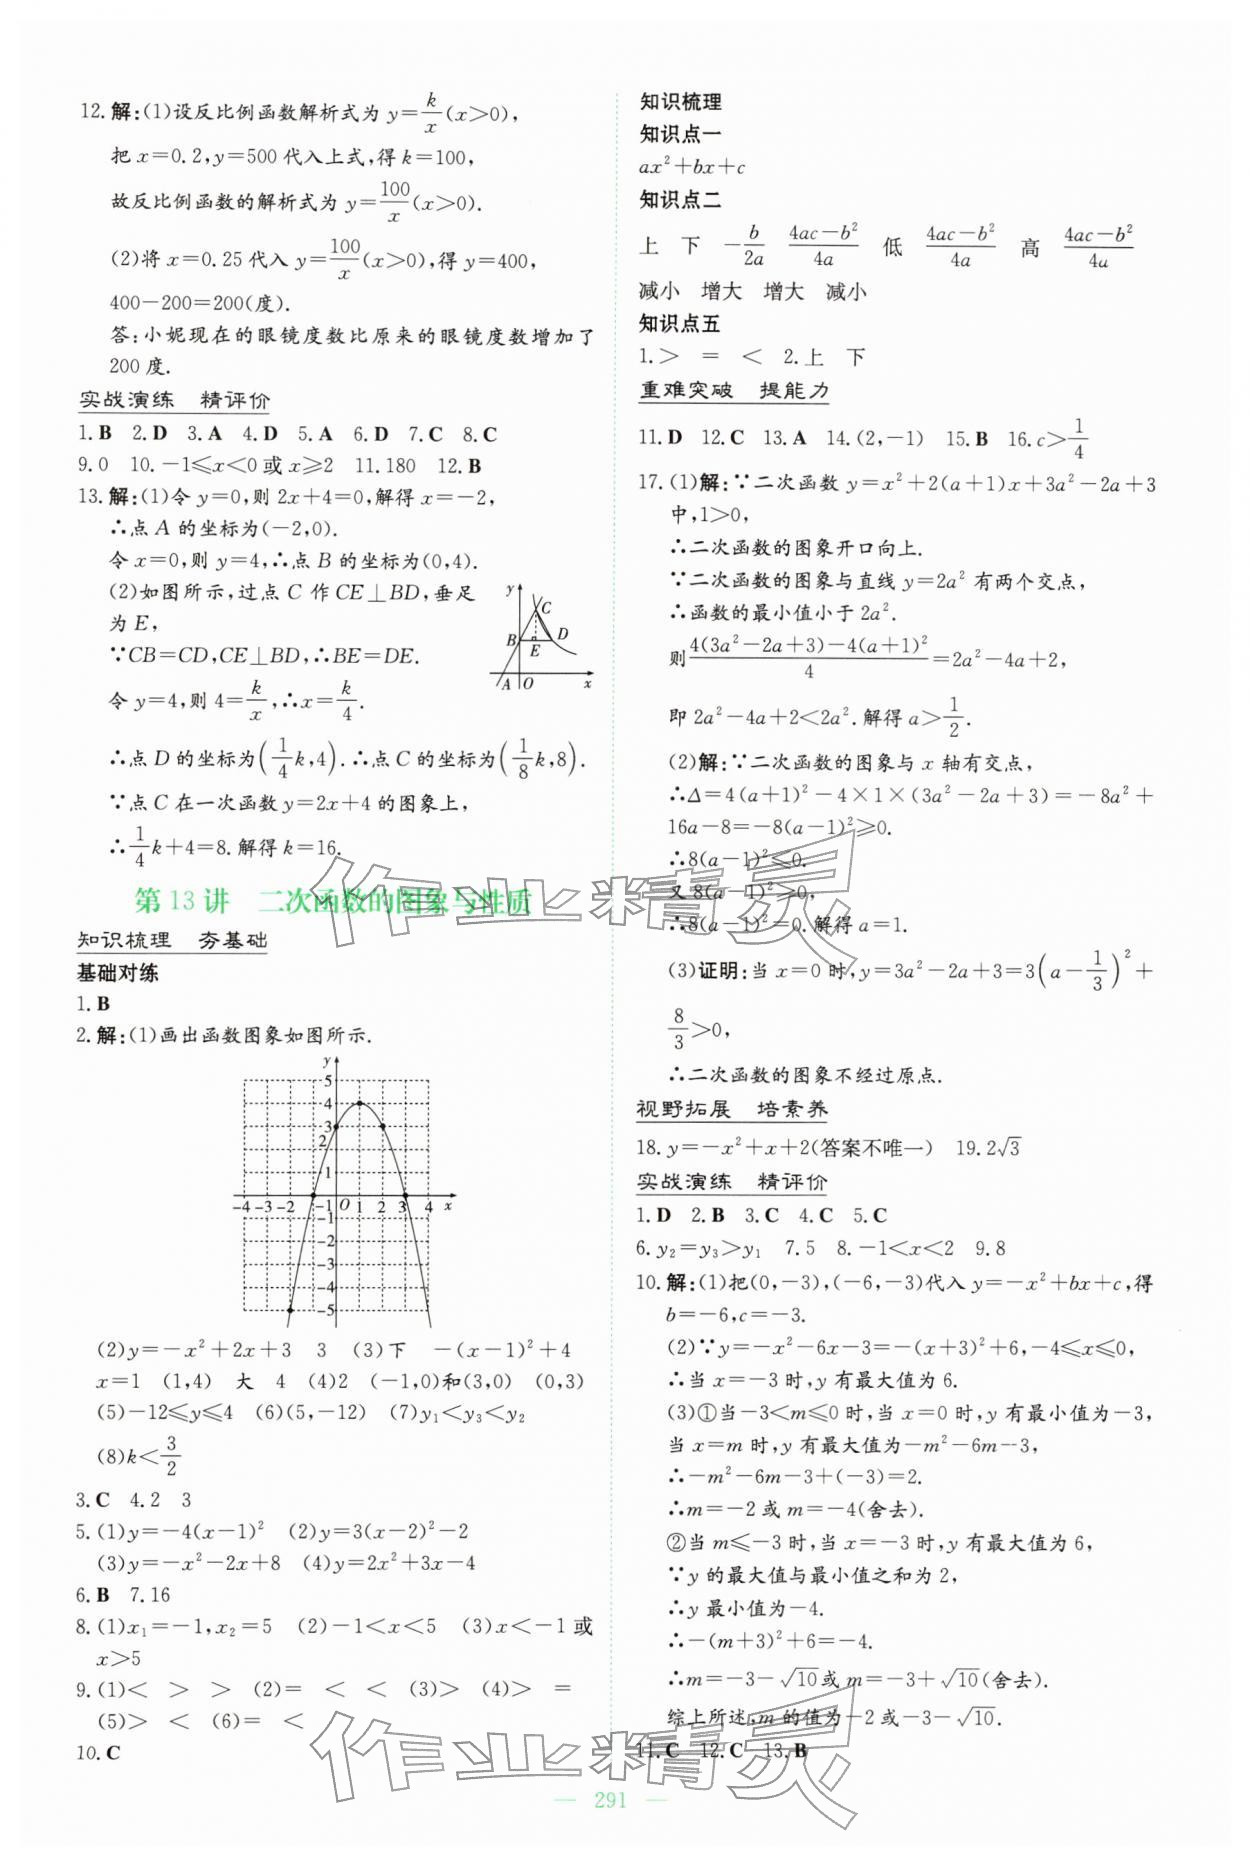 12.解:(1)设反比例函数解析式为 y=k/x(x>0),
把 x=0.2,y=500 代入上式,得 k=100,
故反比例函数的解析式为 y=100/x(x>0).
(2)将 x=0.25 代入 y=100/x(x>0),得 y=400,
400-200=200(度).
答:小妮现在的眼镜度数比原来的眼镜度数增加了
200 度.
实战演练 精评价
1.B 2.D 3.A 4.D 5.A 6.D 7.C 8.C
9.0 10.-1≤x<0 或 x≥2 11.180 12.B
13.解:(1)令 y=0,则 2x+4=0,解得 x=-2,
∴点 A 的坐标为(-2,0).
令 x=0,则 y=4,∴点 B 的坐标为(0,4).
(2)如图所示,过点 C 作 CE⊥BD,垂足
为 E,
∵CB=CD,CE⊥BD,∴BE=DE.
令 y=4,则 4=k/x,∴x=k/4.
y
C
B E D
A O x
∴点 D 的坐标为(1/4 k,4).∴点 C 的坐标为(1/8 k,8).
∵点 C 在一次函数 y=2x+4 的图象上,
∴1/4 k+4=8.解得 k=16.
第 13 讲 二次函数的图象与性质
知识梳理 夯基础
基础对练
1.B
2.解:(1)画出函数图象如图所示.
y
5
4
3
2
1
-4 -3 -2 -1 O 1 2 3 4 x
-1
-2
-3
-4
-5
(2)y=-x²+2x+3 3 (3)下 -(x-1)²+4
x=1 (1,4) 大 4 (4)2 (-1,0)和(3,0) (0,3)
(5)-12≤y≤4 (6)(5,-12) (7)y₁<y₃<y₂
(8)k<3/2
3.C 4.2 3
5.(1)y=-4(x-1)² (2)y=3(x-2)²-2
(3)y=-x²-2x+8 (4)y=2x²+3x-4
6.B 7.16
8.(1)x₁=-1,x₂=5 (2)-1<x<5 (3)x<-1 或
x>5
9.(1)< > > (2)= < < (3)> (4)> =
(5)> < (6)= <
10.C
知识梳理
知识点一
ax²+bx+c
知识点二
上 下 -b/2a (4ac-b²)/4a 低 (4ac-b²)/4a 高 (4ac-b²)/4a
减小 增大 增大 减小
知识点五
1.> = < 2.上 下
重难突破 提能力
11.D 12.C 13.A 14.(2,-1) 15.B 16.c>1/4
17.(1)解:∵二次函数 y=x²+2(a+1)x+3a²-2a+3
中,1>0,
∴二次函数的图象开口向上.
∵二次函数的图象与直线 y=2a² 有两个交点,
∴函数的最小值小于 2a².
则 [4(3a²-2a+3)-4(a+1)²]/4=2a²-4a+2,
即 2a²-4a+2<2a².解得 a>1/2.
(2)解:∵二次函数的图象与 x 轴有交点,
∴Δ=4(a+1)²-4×1×(3a²-2a+3)=-8a²+
16a-8=-8(a-1)²≥0.
∴8(a-1)²≤0.
又 8(a-1)²≥0,
∴8(a-1)²=0.解得 a=1.
(3)证明:当 x=0 时,y=3a²-2a+3=3(a-1/3)²+
8/3>0,
∴二次函数的图象不经过原点.
视野拓展 培素养
18.y=-x²+x+2(答案不唯一) 19.2√3
实战演练 精评价
1.D 2.B 3.C 4.C 5.C
6.y₂=y₃>y₁ 7.5 8.-1<x<2 9.8
10.解:(1)把(0,-3),(-6,-3)代入 y=-x²+bx+c,得
b=-6,c=-3.
(2)∵y=-x²-6x-3=-(x+3)²+6,-4≤x≤0,
∴当 x=-3 时,y 有最大值为 6.
(3)①当-3<m≤0 时,当 x=0 时,y 有最小值为-3,
当 x=m 时,y 有最大值为-m²-6m-3,
∴-m²-6m-3+(-3)=2.
∴m=-2 或 m=-4(舍去).
②当 m≤-3 时,当 x=-3 时,y 有最大值为 6,
∵y 的最大值与最小值之和为 2,
∴y 最小值为-4.
∴-(m+3)²+6=-4.
∴m=-3-√10或 m=-3+√10(舍去).
综上所述,m 的值为-2 或-3-√10.
11.C 12.C 13.B
作业精灵
作业精灵
— 291 —